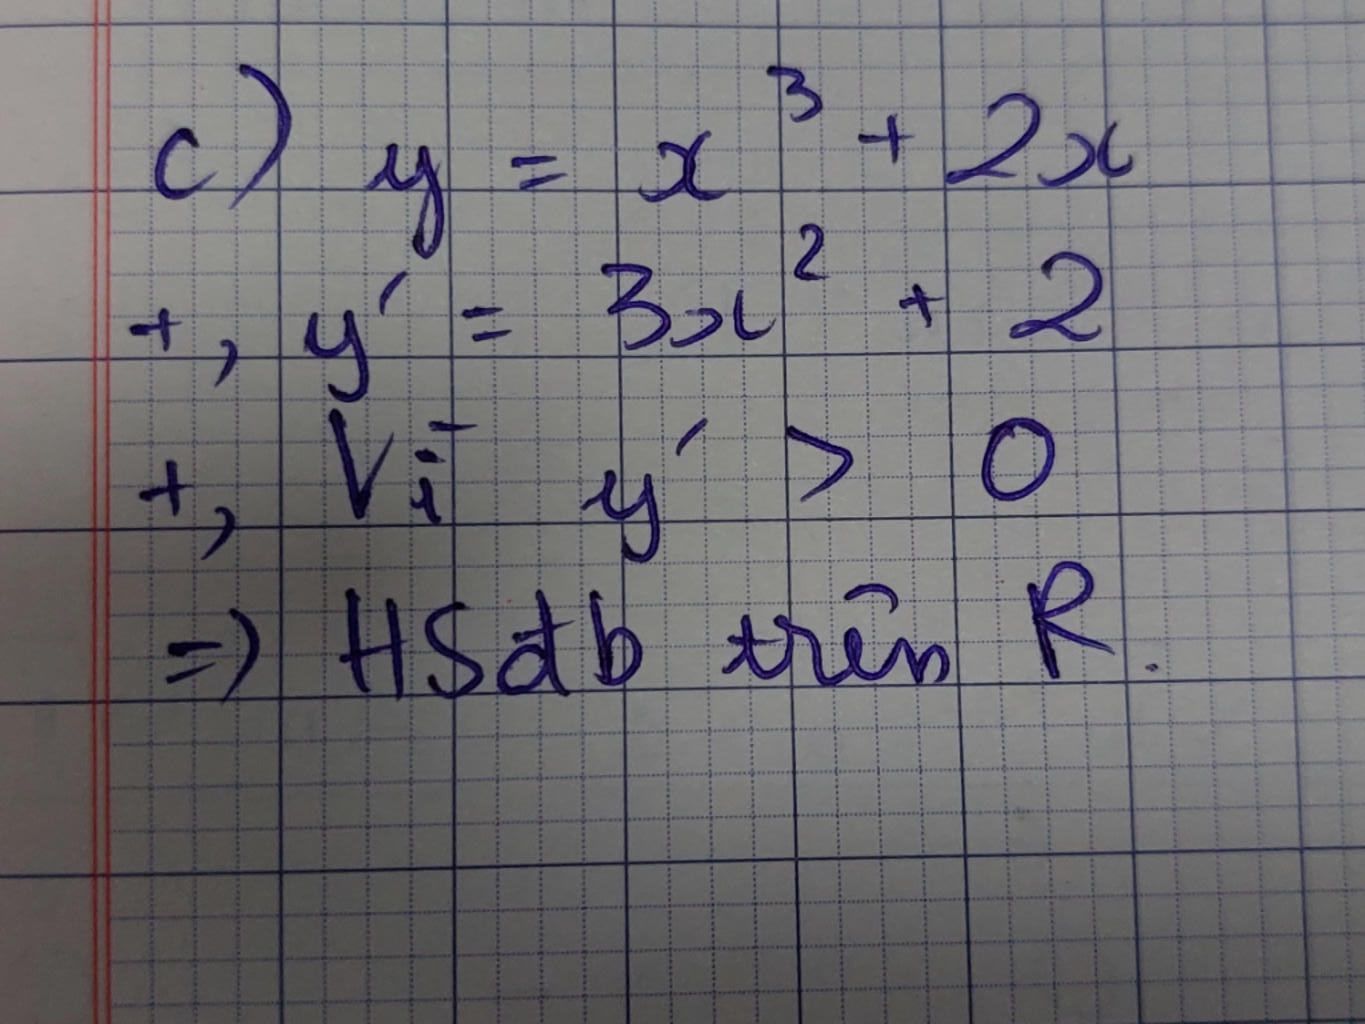 c) y = x³ + 2x
+, y' = 3x² + 2
+, Vì y' > 0
=) HSđb trên R.